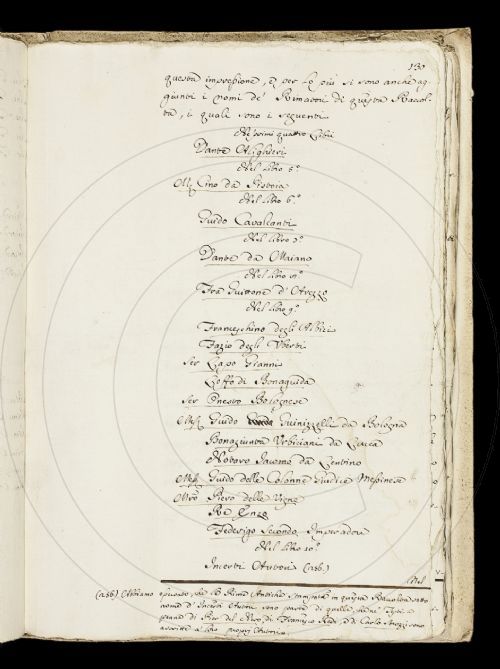 130
questa impressione, e per lo più si sono anche ag-
giunti i nomi de' Rimatori di questa Raccol-
ta, i quali sono i seguenti.
Ne' primi quattro Libri
Dante Alighieri
Nel Libro 5.º
M. Cino da Pistoia
Nel Libro 6.º
Guido Cavalcanti
Nel Libro 7.º
Dante da Maiano
Nel Libro 8.º
Fra Guittone d'Arezzo
Nel Libro 9.º
Franceschino degli Albizi
Fazio degli Uberti
Ser Lapo Gianni
Loffo di Bonaguida
Ser Onesto Bolognese
Mess. Guido Guinizzelli da Bologna
Bonagiunta Urbiciani da Lucca
Notaro Jacomo da Lentino
Mess. Guido delle Colonne Giudice Messinese
Mro Piero delle Vigne
Re Enzo
Federigo Secondo Imperadore
Nel Libro 10.º
Incerti Autori (a56.)
(a56) Abbiamo che le Rime Antiche stampate in questa Raccolta sotto
nome d'Incerti Autori sono parte di quelle, che ne' Testi a
penna di Pier del Nero, di Francesco Redi, e di Carlo Strozzi sono
ascritte a' loro proprj Autori.